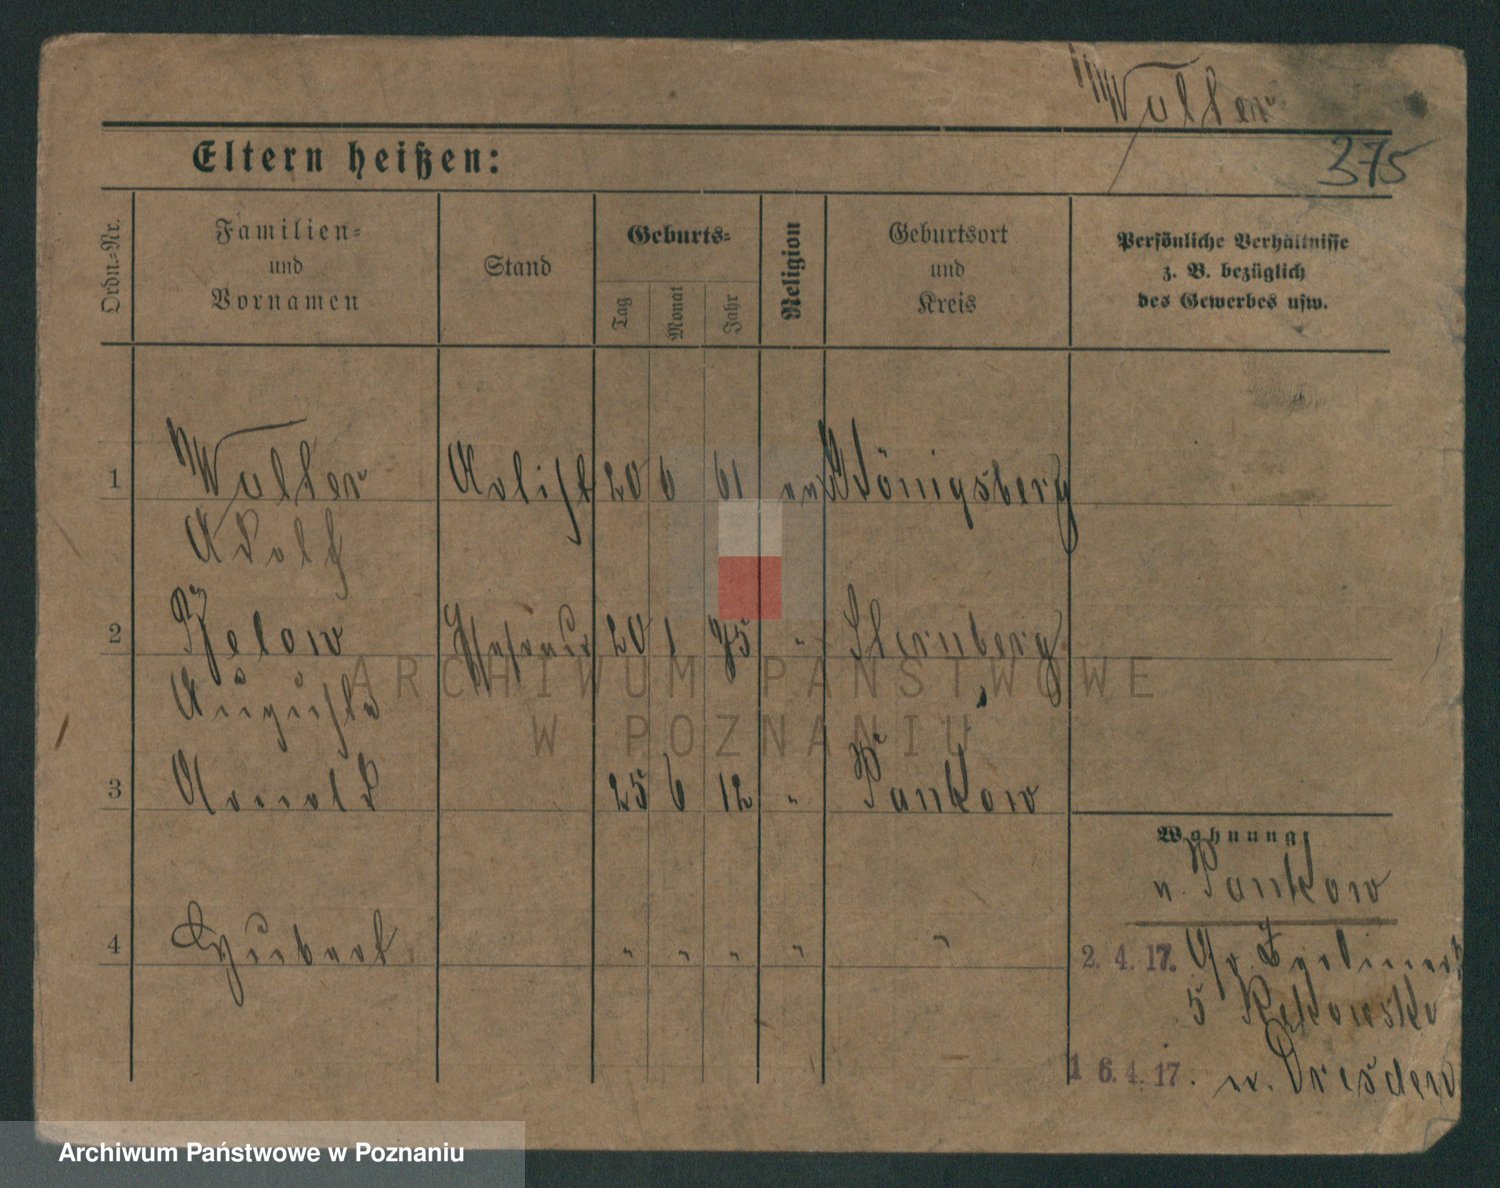 Walter
375
Eltern heißen:
Ordn.-Nr.
Familien-
und
Vornamen
Stand
Geburts-
Tag
Monat
Jahr
Religion
Geburtsort
und
Kreis
Persönliche Verhältnisse
z. B. bezüglich
des Gewerbes usw.
1 Walter Artist 20 6 61 Königsberg
Adolf
2 Pjelow Ehefrau 20 1 75 " Sternberg
Auguste
3 Arnold 25 6 12 " Pankow
Wohnung:
n. Pankow
4 " " " " "
2. 4. 17. Gr.
5
16. 4. 17. n. Dresden
ARCHIWUM PAŃSTWOWE
W POZNANIU
Archiwum Państwowe w Poznaniu